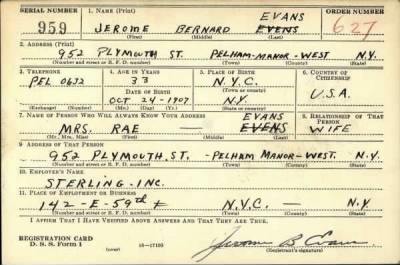 SERIAL NUMBER 1. NAME (Print) ORDER NUMBER
EVANS
959 JEROME BERNARD EVENS 627
(First) (Middle) (Last)
2. ADDRESS (Print)
952 PLYMOUTH ST. PELHAM-MANOR-WEST N.Y.
(Number and street or R. F. D. number) (Town) (County) (State)
3. TELEPHONE 4. AGE IN YEARS 5. PLACE OF BIRTH 6. COUNTRY OF CITIZENSHIP
PEL 0672 33 N.Y.C.
DATE OF BIRTH (Town or county)
OCT 24-1907 N.Y. U.S.A.
(Exchange) (Number) (Mo.) (Day) (Yr.) (State or country)
7. NAME OF PERSON WHO WILL ALWAYS KNOW YOUR ADDRESS 8. RELATIONSHIP OF THAT PERSON
EVANS
MRS. RAE — EVENS WIFE
(Mr., Mrs., Miss) (First) (Middle) (Last)
9. ADDRESS OF THAT PERSON
952 PLYMOUTH.ST. -PELHAM MANOR-WEST. N.Y.
(Number and street or R. F. D. number) (Town) (County) (State)
10. EMPLOYER'S NAME
STERLING-INC.
11. PLACE OF EMPLOYMENT OR BUSINESS
142-E-59th N.Y.C. — N.Y.
(Number and street or R. F. D. number) (Town) (County) (State)
I AFFIRM THAT I HAVE VERIFIED ABOVE ANSWERS AND THAT THEY ARE TRUE.
REGISTRATION CARD
D. S. S. Form 1 16—17105 Jerome B Evans
(Registrant's signature)